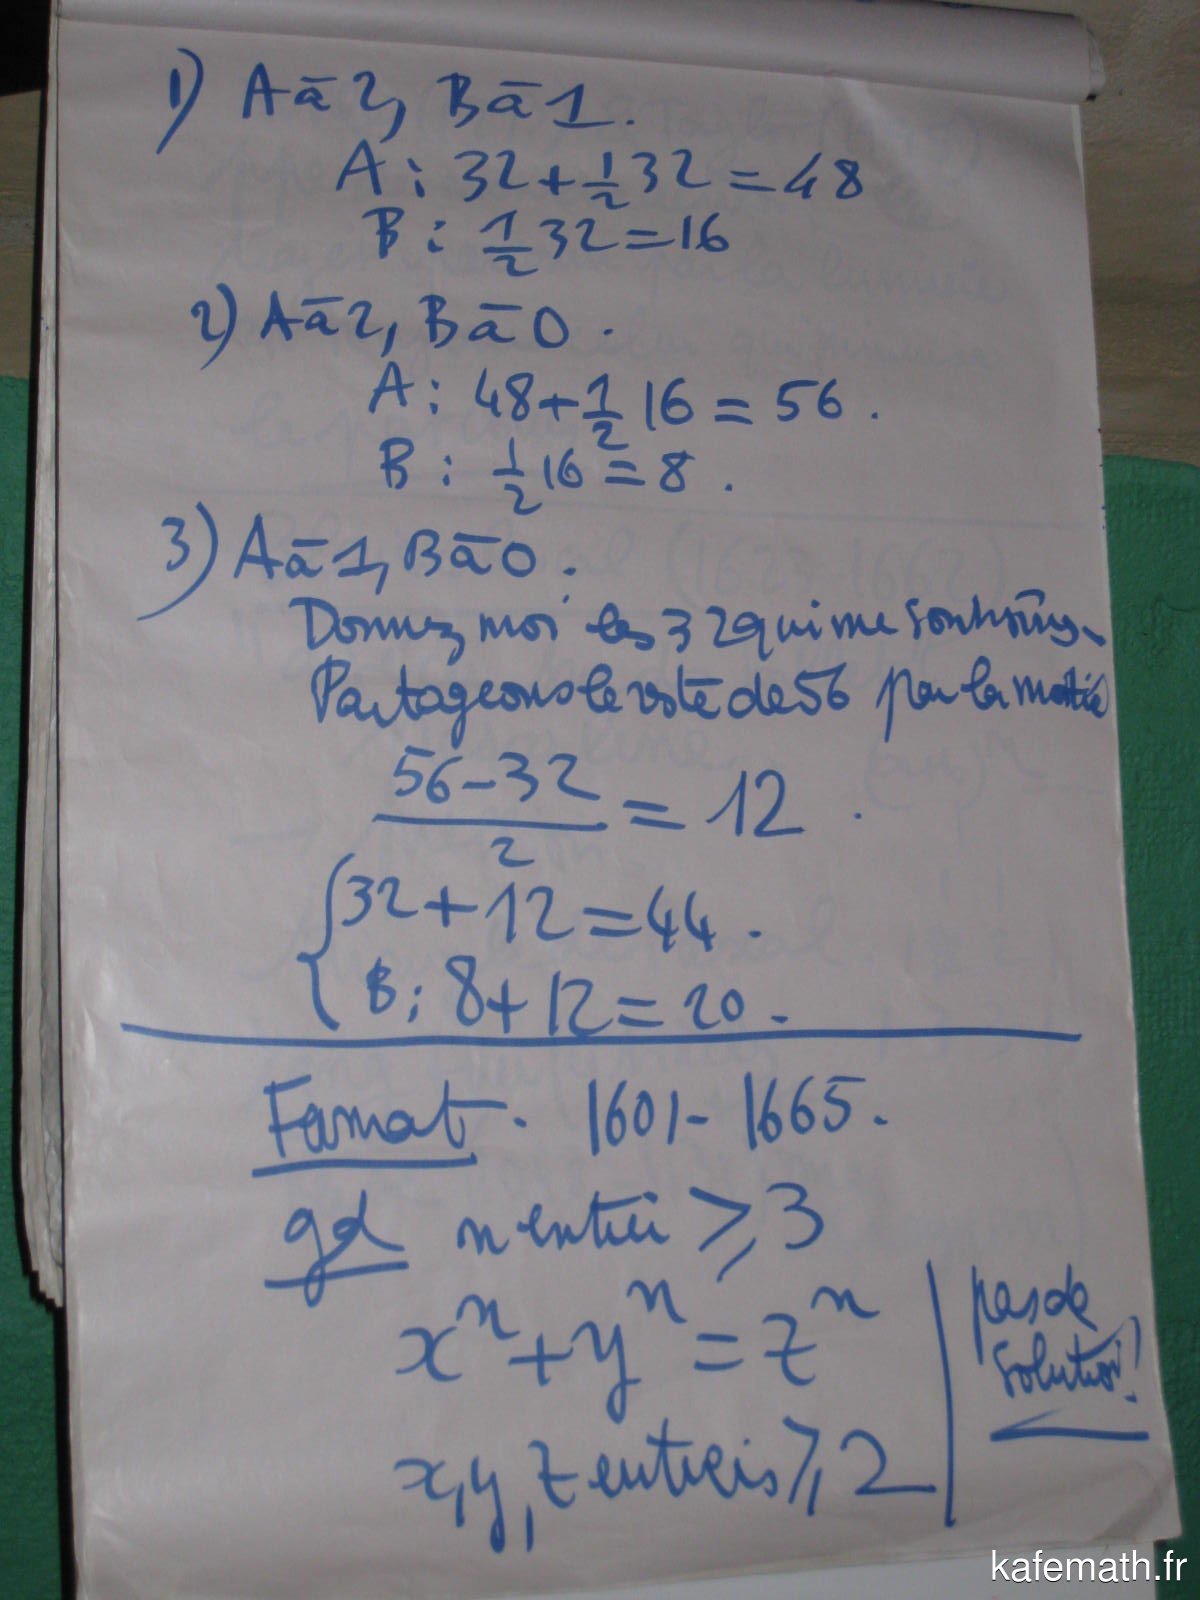 1) A à 2, B à 1.
A : 32 + 1/2 32 = 48
B : 1/2 32 = 16
2) A à 2, B à 0.
A : 48 + 1/2 16 = 56.
B : 1/2 16 = 8.
3) A à 1, B à 0.
Donnez moi les 32 qui me sont
Partageons le reste de 56 par la moitié
56-32 / 2 = 12.
32 + 12 = 44.
B : 8 + 12 = 20.
Fermat. 1601-1665.
gd n entier ⩾ 3
xⁿ + yⁿ = zⁿ
pas de
solution!
x, y, z entiers ⩾ 2
kafemath.fr